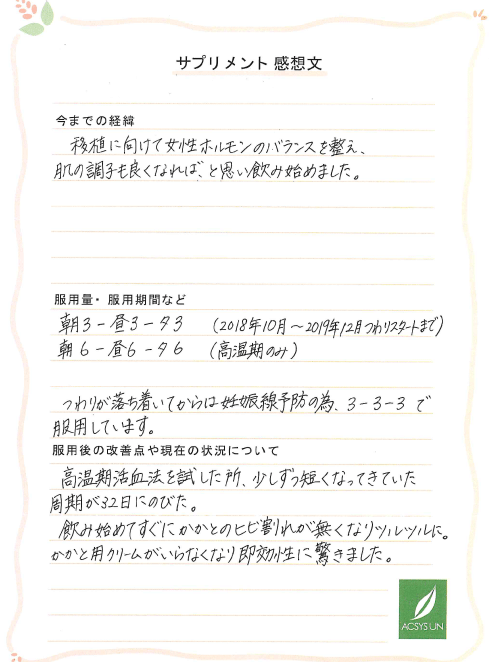 サプリメント 感想文
今までの経緯
移植に向けて女性ホルモンのバランスを整え、
肌の調子も良くなれば、と思い飲み始めました。
服用量・服用期間など
朝3-昼3-夕3 (2018年10月~2019年12月つわりスタートまで)
朝6-昼6-夕6 (高温期のみ)
つわりが落ち着いてからは妊娠線予防の為、3-3-3で
服用しています。
服用後の改善点や現在の状況について
高温期活血法を試した所、少しずつ短くなってきていた
周期が32日にのびた。
飲み始めてすぐにかかとのヒビ割れが無くなりツルツルに。
かかと用クリームがいらなくなり即効性に驚きました。
ACSYSUN